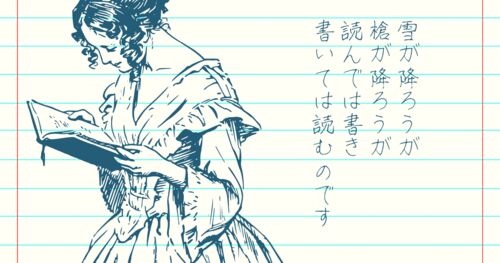 雪が降ろうが
槍が降ろうが
読んでは書き
書いては読むのです